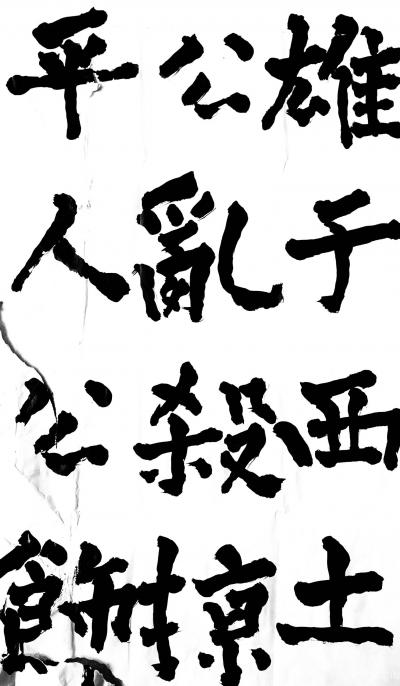 雄于西土
公亂殺掠
平人公飾